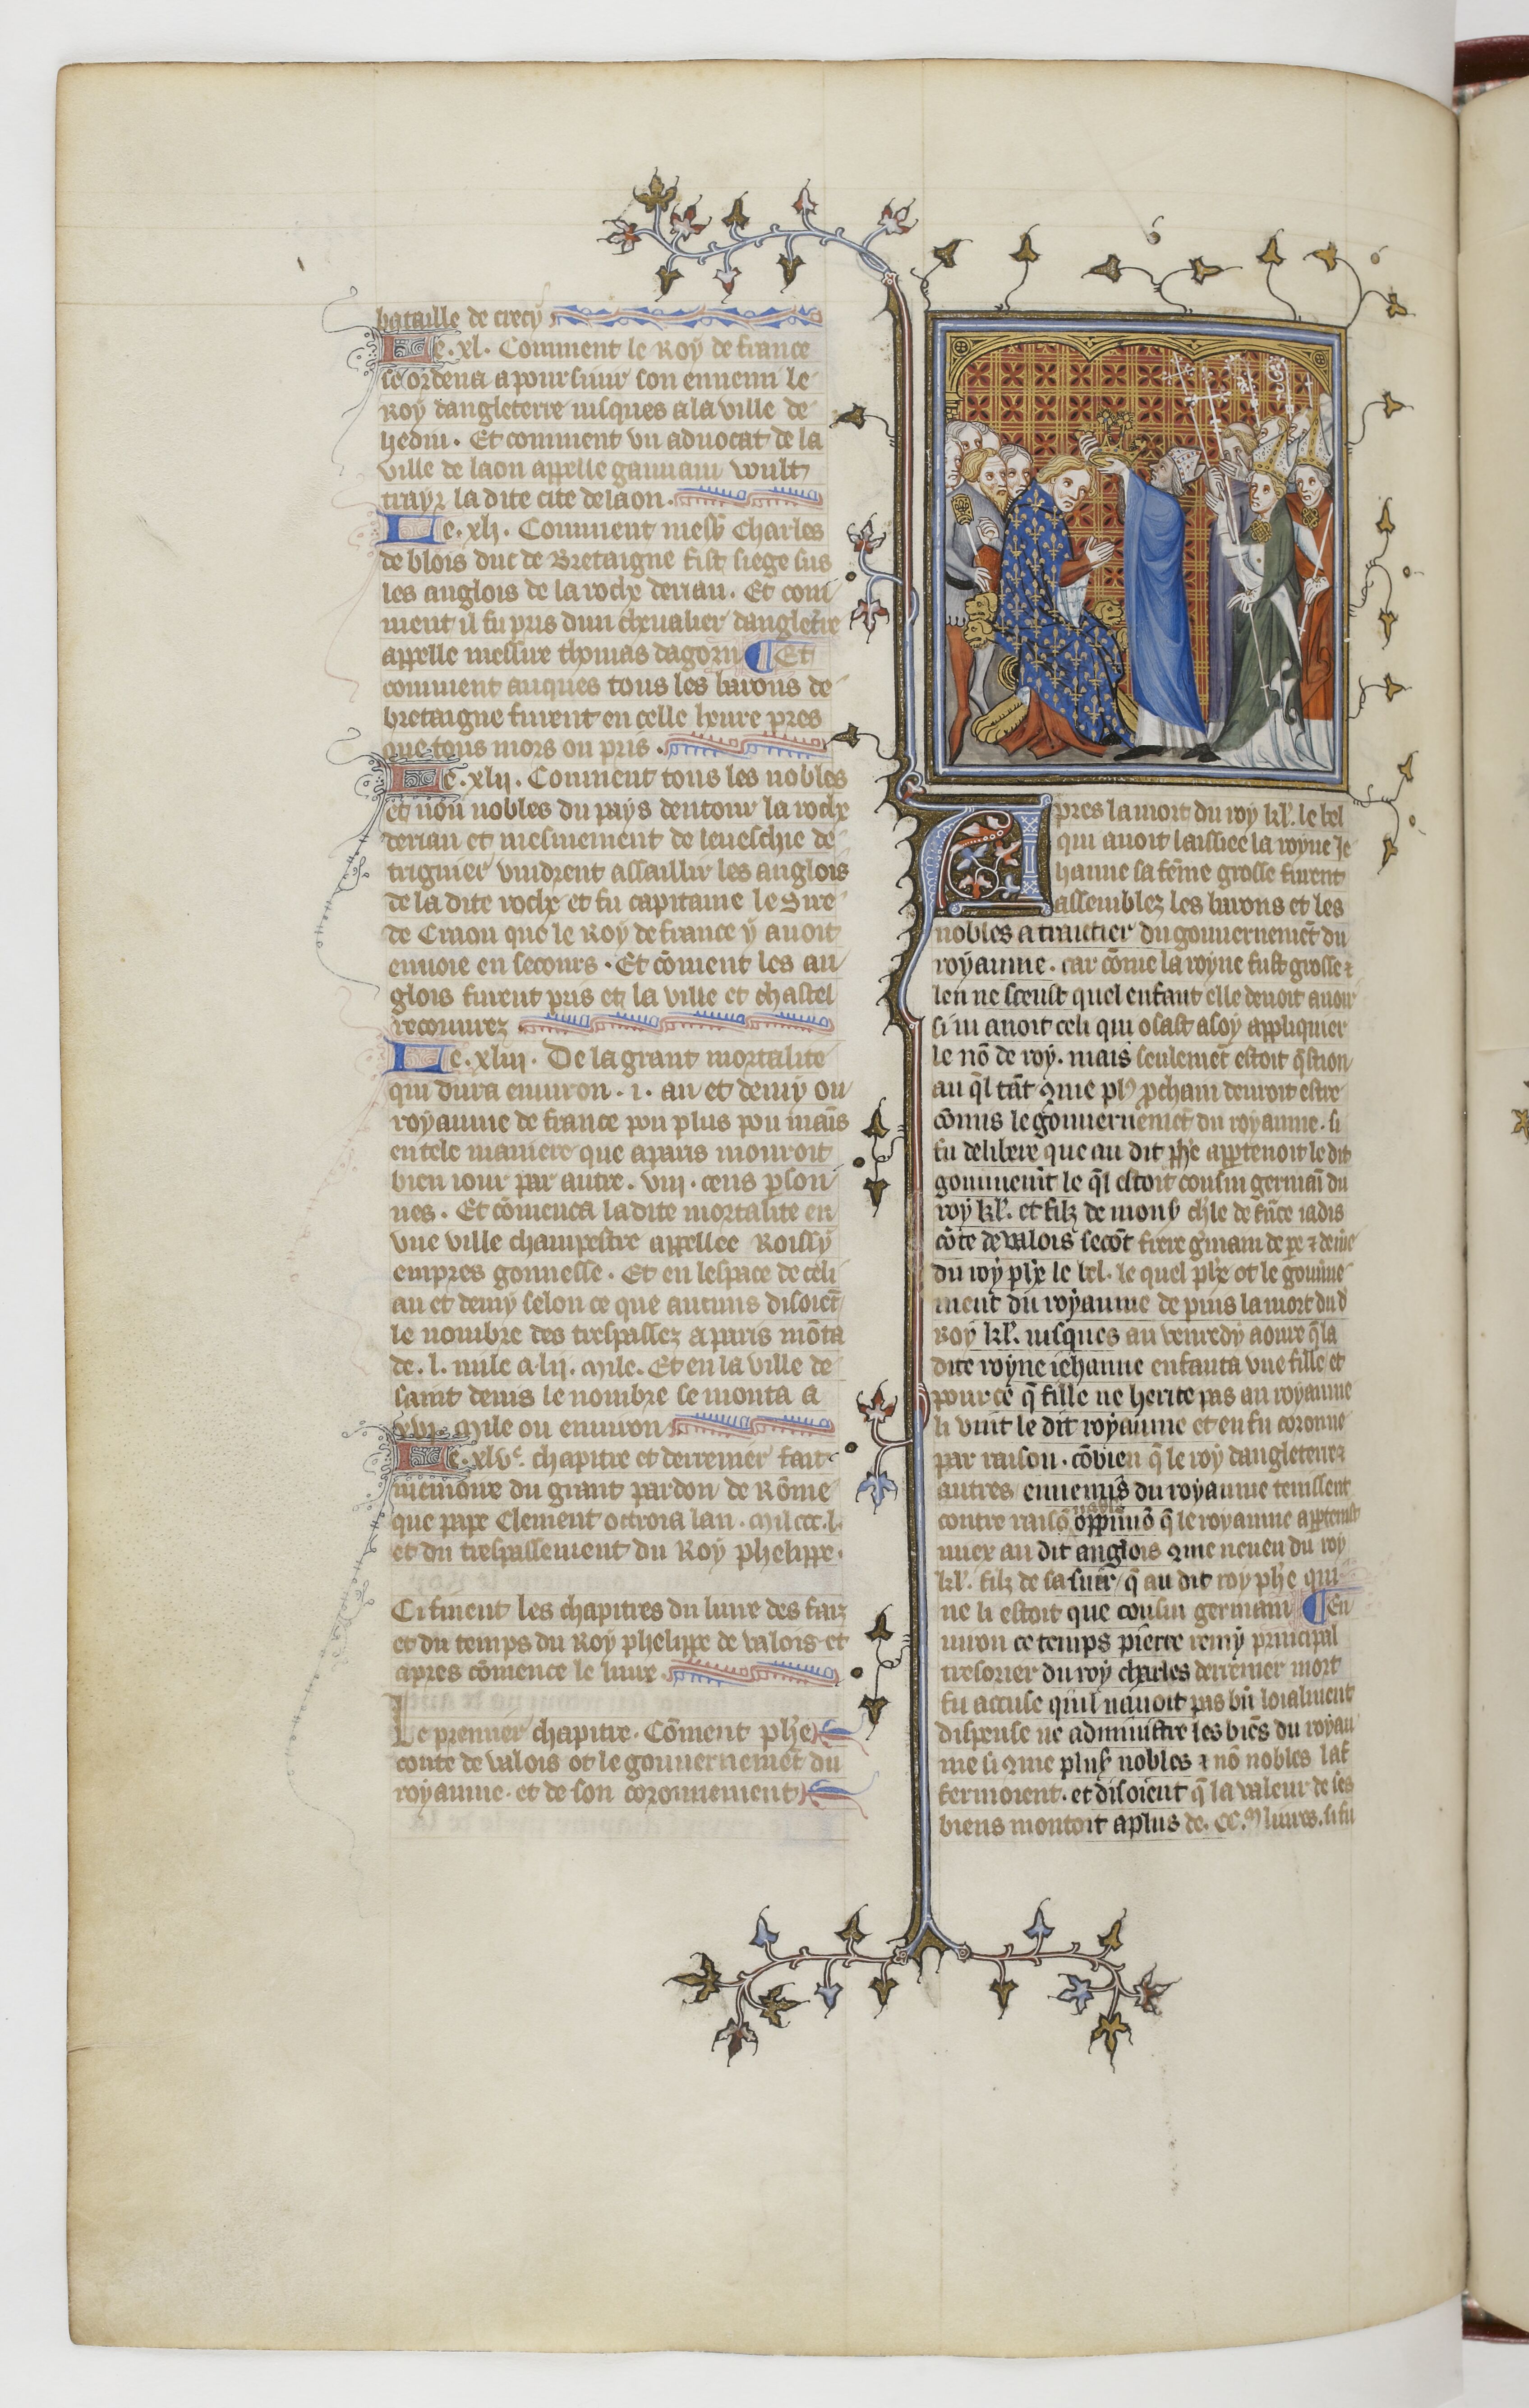 bataille de crecy
Le .xl. Comment le Roy de france
se ordena a poursuiur son ennemi le
Roy dangleterre iusques a la ville de
hedin. Et comment vn aduocat de la
ville de laon appelle gauuain voult
trayr la dite cite de laon.
Le .xli. Comment mess̃ Charles
de blois duc de Bretaigne fist siege sus
les anglois de la roche derian. Et com
ment il fu pris dun cheualier dangleterre
appelle messire thomas dagorn ¶ Et
comment auques tous les barons de
bretaigne furent en celle heure pres
que tous mors ou pris.
Le .xlij. Comment tous les nobles
et non nobles du pays dentour la roche
derian et mesmement de leueschie de
triguier vindrent assaillir les anglois
de la dite roche et fu capitaine le Sire
de Craon que le Roy de france y auoit
enuoie en secours. Et cõment les an
glois furent pris et la ville et chastel
recouurez.
Le .xliij. De la grant mortalite
qui dura enuiron .i. an et demy ou
royaume de france pou plus pou mains
en tele maniere que a paris mouroit
bien iour par autre .viij. cens ꝑson
nes. Et cõmenca la dite mortalite en
vne ville champestre appellee Roissy
empres gonnesse. Et en lespace de celi
an et demy selon ce que aucuns disoiẽt
le nombre des trespassez a paris mõta
de .l. mile a .lij. mile. Et en la ville de
saint denis le nombre se monta a
.xvi. mile ou enuiron
Le .xlvᵉ. chapitre et derrenier fait
memoire du grant pardon de Rõme
que pape Clement octroia lan .mil ccc.l.
et du trespassement du Roy phelippe.
Ci finent les chapitres du liure des faiz
et du temps du Roy phelippe de valois et
apres cõmence le liure
Le premier chapitre. Cõment phẽ
conte de valois ot le gouuernemẽt du
royaume. et de son coronnement
Apres la mort du roy kl'. le bel
qui auoit laissiee la royne Je
hanne sa fẽme grosse furent
assemblez les barons et les
nobles a traitier du gouuernemẽt du
royaume. car cõme la royne fust grosse ⁊
len ne sceust quel enfant elle deuoit auoir
si ni auoit celi qui osast a soy appliquier
le nõ de roy. mais seulemẽt estoit q̃stion
au q̃l tãt ꝯme plꝰ ꝓchain deuroit estre
cõmis le gouuernemẽt du royaume. si
fu delibere que au dit phẽ appartenoit le dit
gouuemẽt le q̃l estoit cousin germaĩ du
roy kl'. et filz de monš chl'e de frãce iadis
cõte de valois secõt frere gmain de pere ⁊ de mere
du roy phe le bel. le quel phe ot le gouuerne
ment du royaume de puis la mort du d̃
Roy kl'. iusques au venredy aoure q̃ la
dite royne iehanne enfanta vne fille et
pour ce q̃ fille ne herite pas au royaume
li vint le dit royaume et en fu coronne
par raison. cõbien q̃ le roy dangleterre ⁊
autres ennemis du royaume tenissent
contre raisõ oppiniõ q̃ le royaume appartenist
miex au dit anglois ꝯme neueu du roy
kl'. filz de sa suer / q̃ au dit roy phẽ qui
ne li estoit que cousin germain ¶ En
uiron ce temps pierre remy principal
tresorier du roy charles derrenier mort
fu accuse quil nauoit pas biẽ loialment
dispense ne administre les biẽs du royau
me si ꝯme plusš nobles ⁊ nõ nobles laf
fermoient. et disoient q̃ la valeur de ses
biens montoit a plus de .CC.ᵐ liures. si fu